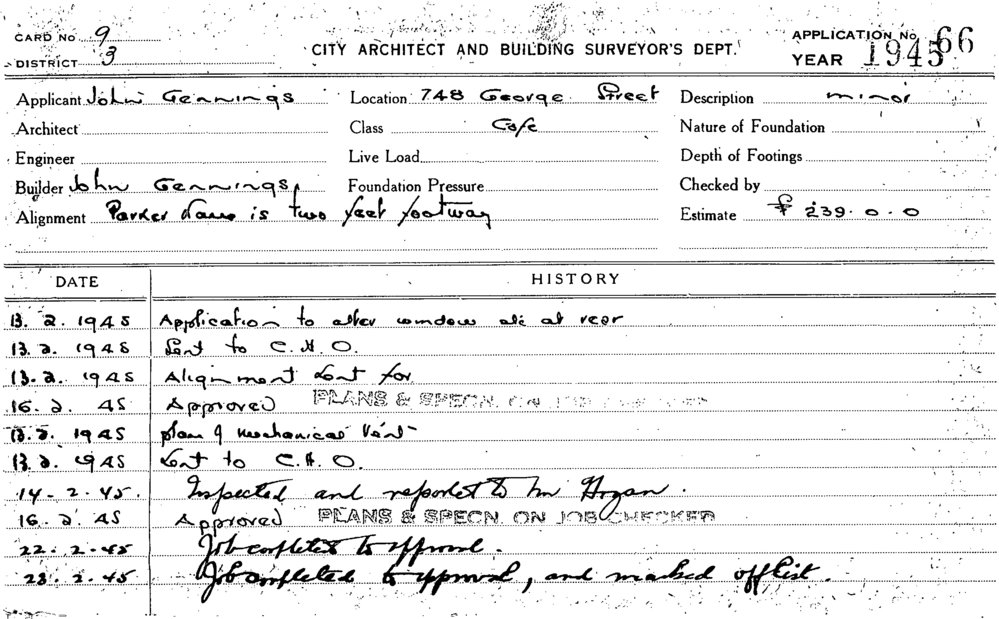 CARD No 9
DISTRICT 3
CITY ARCHITECT AND BUILDING SURVEYOR'S DEPT.
APPLICATION No. 66
YEAR 1945
Applicant John Gennings Location 748 George Street Description minor
Architect Class Cafe Nature of Foundation
Engineer Live Load Depth of Footings
Builder John Gennings, Foundation Pressure Checked by
Alignment Parker Lane is two feet footway Estimate £ 239.0.0
DATE HISTORY
13. 2. 1945 Application to alter window etc at rear
13. 2. 1945 Sent to C.H.O.
13. 2. 1945 Alignment sent for
16. 2. 45 Approved PLANS & SPECN. ON JOB
13. 2. 1945 plan of mechanical Vent
13. 2. 1945 Sent to C.H.O.
14. 2. 45. Inspected and reported to Mr Hogan.
16. 2. 45 Approved PLANS & SPECN. ON JOB CHECKED
22. 2. 45 Job completed to approval.
23. 2. 45 Job completed to approval, and marked off list.